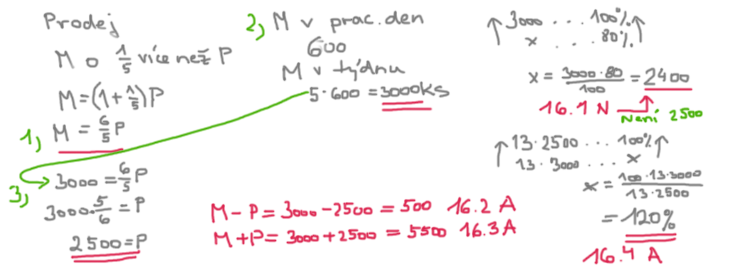 Prodej
M o 1/5 více než P
M=(1+1/5)P
1, M = 6/5 P
3, 3000 = 6/5 P
3000·5/6 = P
2500=P
2, M v prac. den
600
M v týdnu
5·600 = 3000ks
M-P = 3000-2500 = 500 16.2 A
M+P = 3000+2500 = 5500 16.3 A
↑3000 ... 100%↑
x ... 80%
x = 3000·80/100 = 2400
16.1 N
Není 2500
↑13·2500 ... 100%↑
13·3000 ... x
x = 100·13·3000/13·2500
= 120%
16.4 A